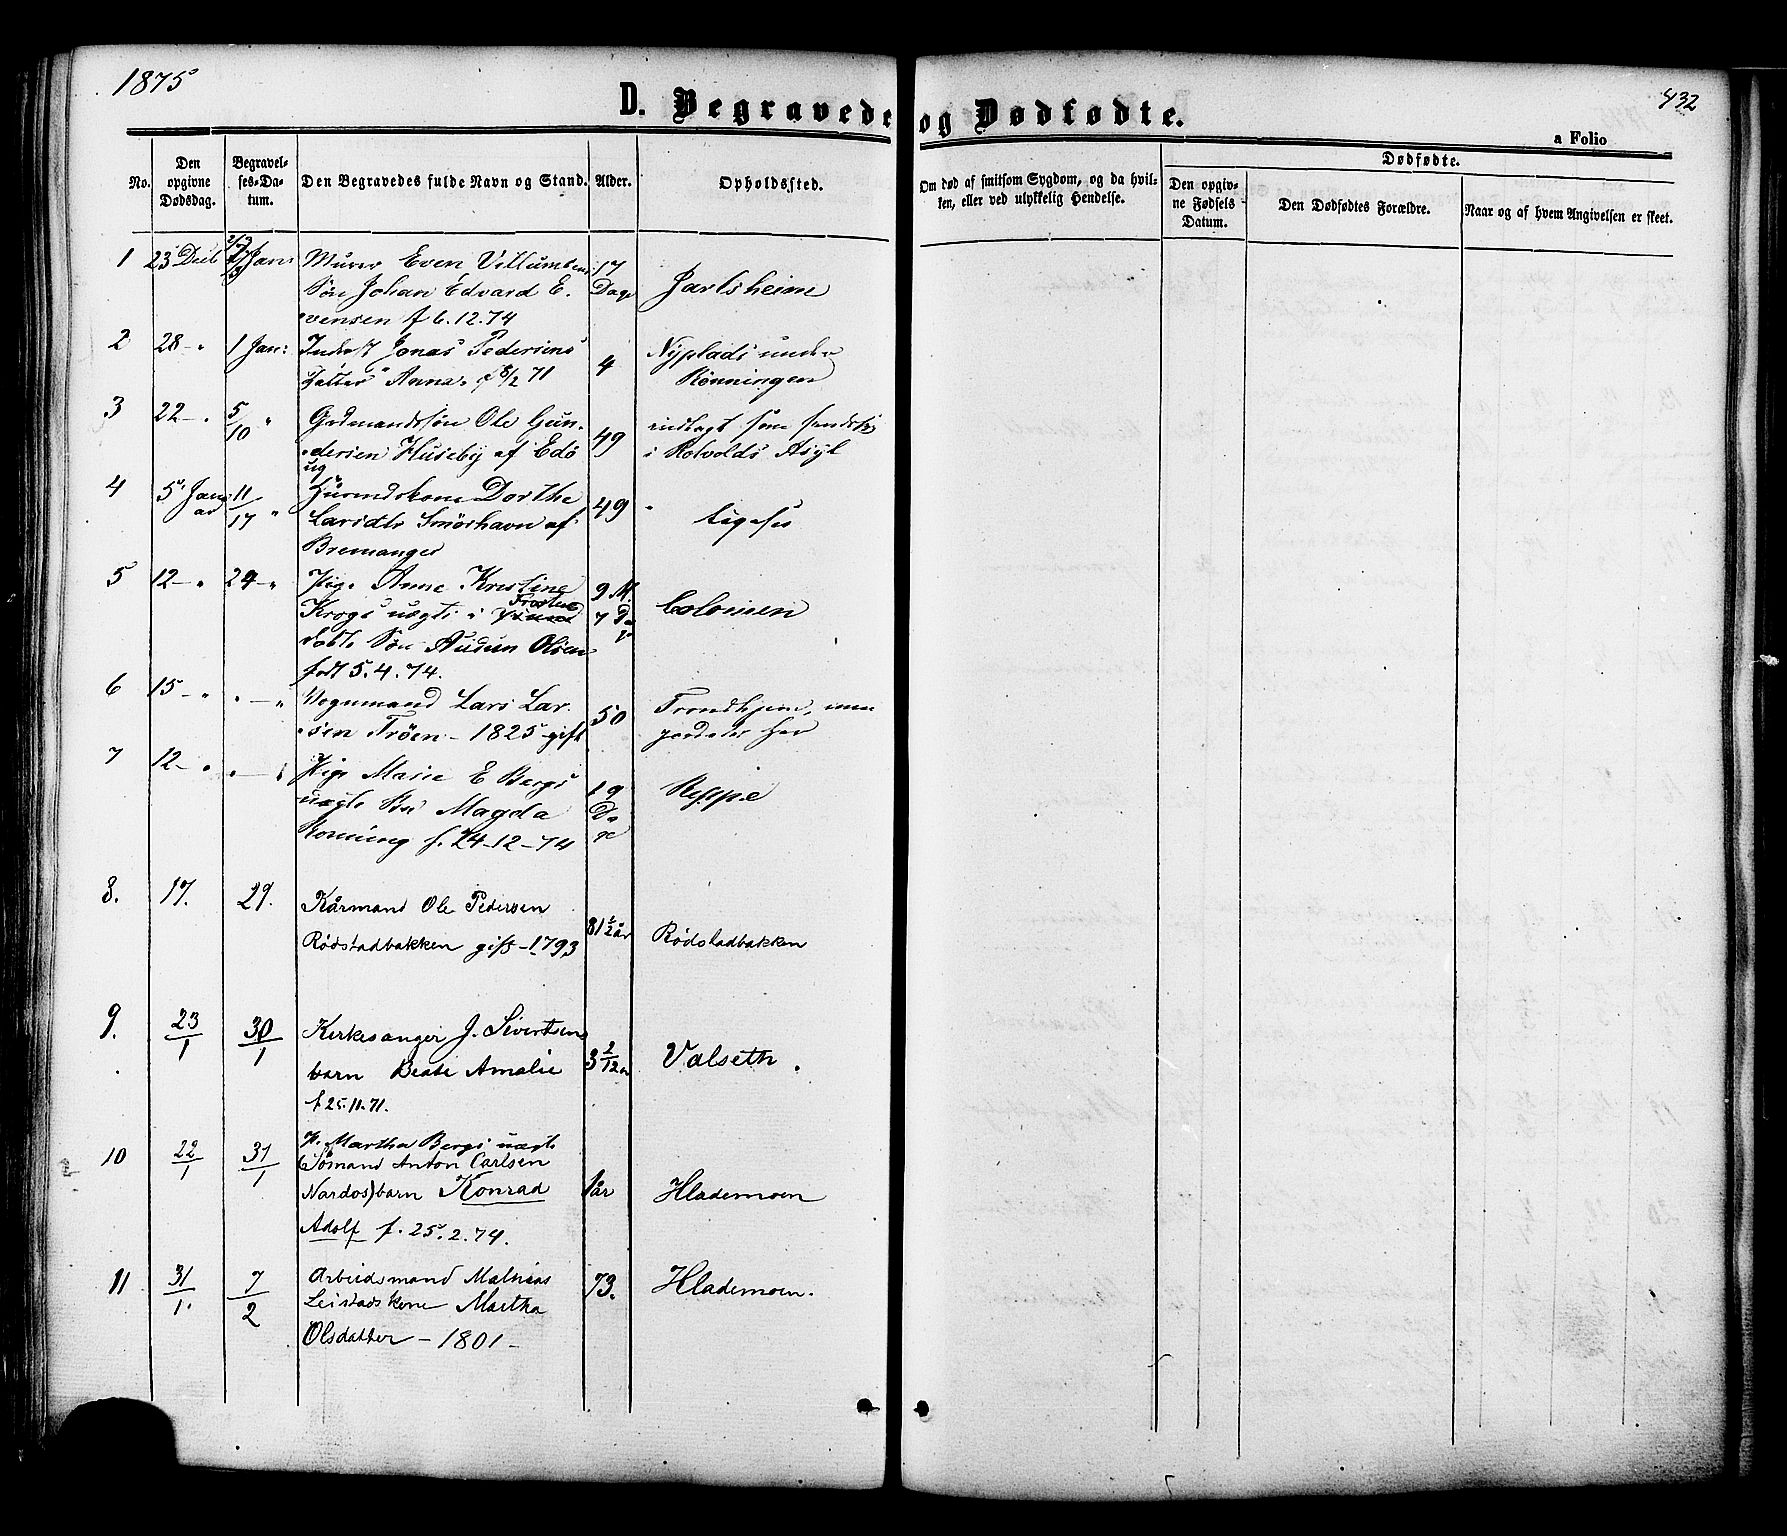 1875
432
D. Begravede og Dødfødte.
a Folio
No.
Den opgivne Dødsdag.
Begravelses-Datum.
Den Begravedes fulde Navn og Stand.
Alder.
Opholdssted.
Om død af smitsom Sygdom, og da hvilken, eller ved ulykkelig Hendelse.
Dødfødte.
Den opgivne Fødsels Datum.
Den Dødfødtes Forældre.
Naar og af hvem Angivelsen er skeet.
1 23 Decb Jan: Murer Even Villumsens 17
Søn Johan Edvard E. Dage Jarlsheim
vensen f 6.12.74
2 28 - " 1 Jan: Inderst Jonas Pedersens 4 Nyplads under
Datter Anna f 8/2 71 Rønningen
3 22 - " 5/10 " Gudmandssøn Ole Gun- 49 indlagt som sindssyg
dersen Huseby af Edø i Rotvolds Asyl
4 5 Janu 11/17 " Huusmdskone Dorthe 49 " ligeså
ar Larsdtr Smörhavn af
Bremanger
5 12 - " 24 - " Pige Anne Kristine 9 M. Colonien
Krogs uægte i Frosten 7 Da
døbte Søn Audun Olsen ge
født 5.4.74.
6 15 - " " - " Vognmand Lars Lar- 50 Trondhjem, men
sen Trøen - 1825 gift jordedes her
7 12 - " " - " Pige Marie E Bergs 19 Reppe
uægte Br Magda Da
Romung f. 24-12-74 ge
8. 17. 29. Kårmand Ole Pedersen 81 1/2 år Rödstadbakken
Rödstadbakken gift - 1793
9. 23/1 30/1 Kirkesanger J. Sivertsens 3 2/12 Valseth.
barn Beate Amalie
f 25.11.71.
10 22/1 31/1 P. Martha Bergs uægte
(Sömand Anton Carlsen
Nardos) barn Konrad 1 år Hlademoen
Adolf f. 25.2.74.
11 31/1. 7/2 Arbeidsmand Mathias 73. Hlademoen.
Leistads kone Martha
Olsdatter - 1801 -